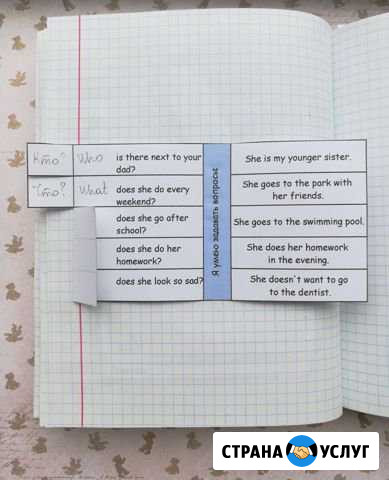 Кто? Who is there next to your
dad?
She is my younger sister.
Что? What does she do every
weekend?
She goes to the park with
her friends.
does she go after
school?
She goes to the swimming pool.
does she do her
homework?
She does her homework
in the evening.
does she look so sad?
She doesn't want to go
to the dentist.
Я умею задавать вопросы:
СТРАНА УСЛУГ